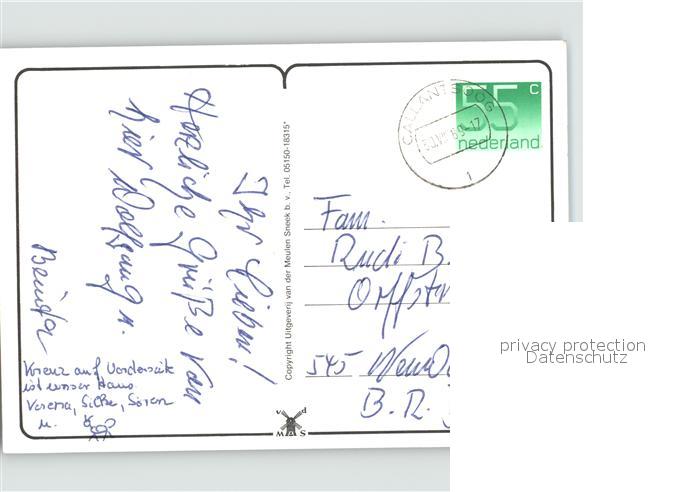 Ihr Lieben!
Herzliche Grüße von
hier Wolfgang u.
Kreuz auf Vorderseite
ist unser Haus.
Verena, Silke, Sören
u.
Copyright Uitgeverij van der Meulen Sneek b. v., Tel. 05150-18315*
v d
M S
CALLANTSOOG
1
55 c
nederland
Fam.
Rudi B.
Orffstr
545 Neuwi
B. R.
privacy protection
Datenschutz